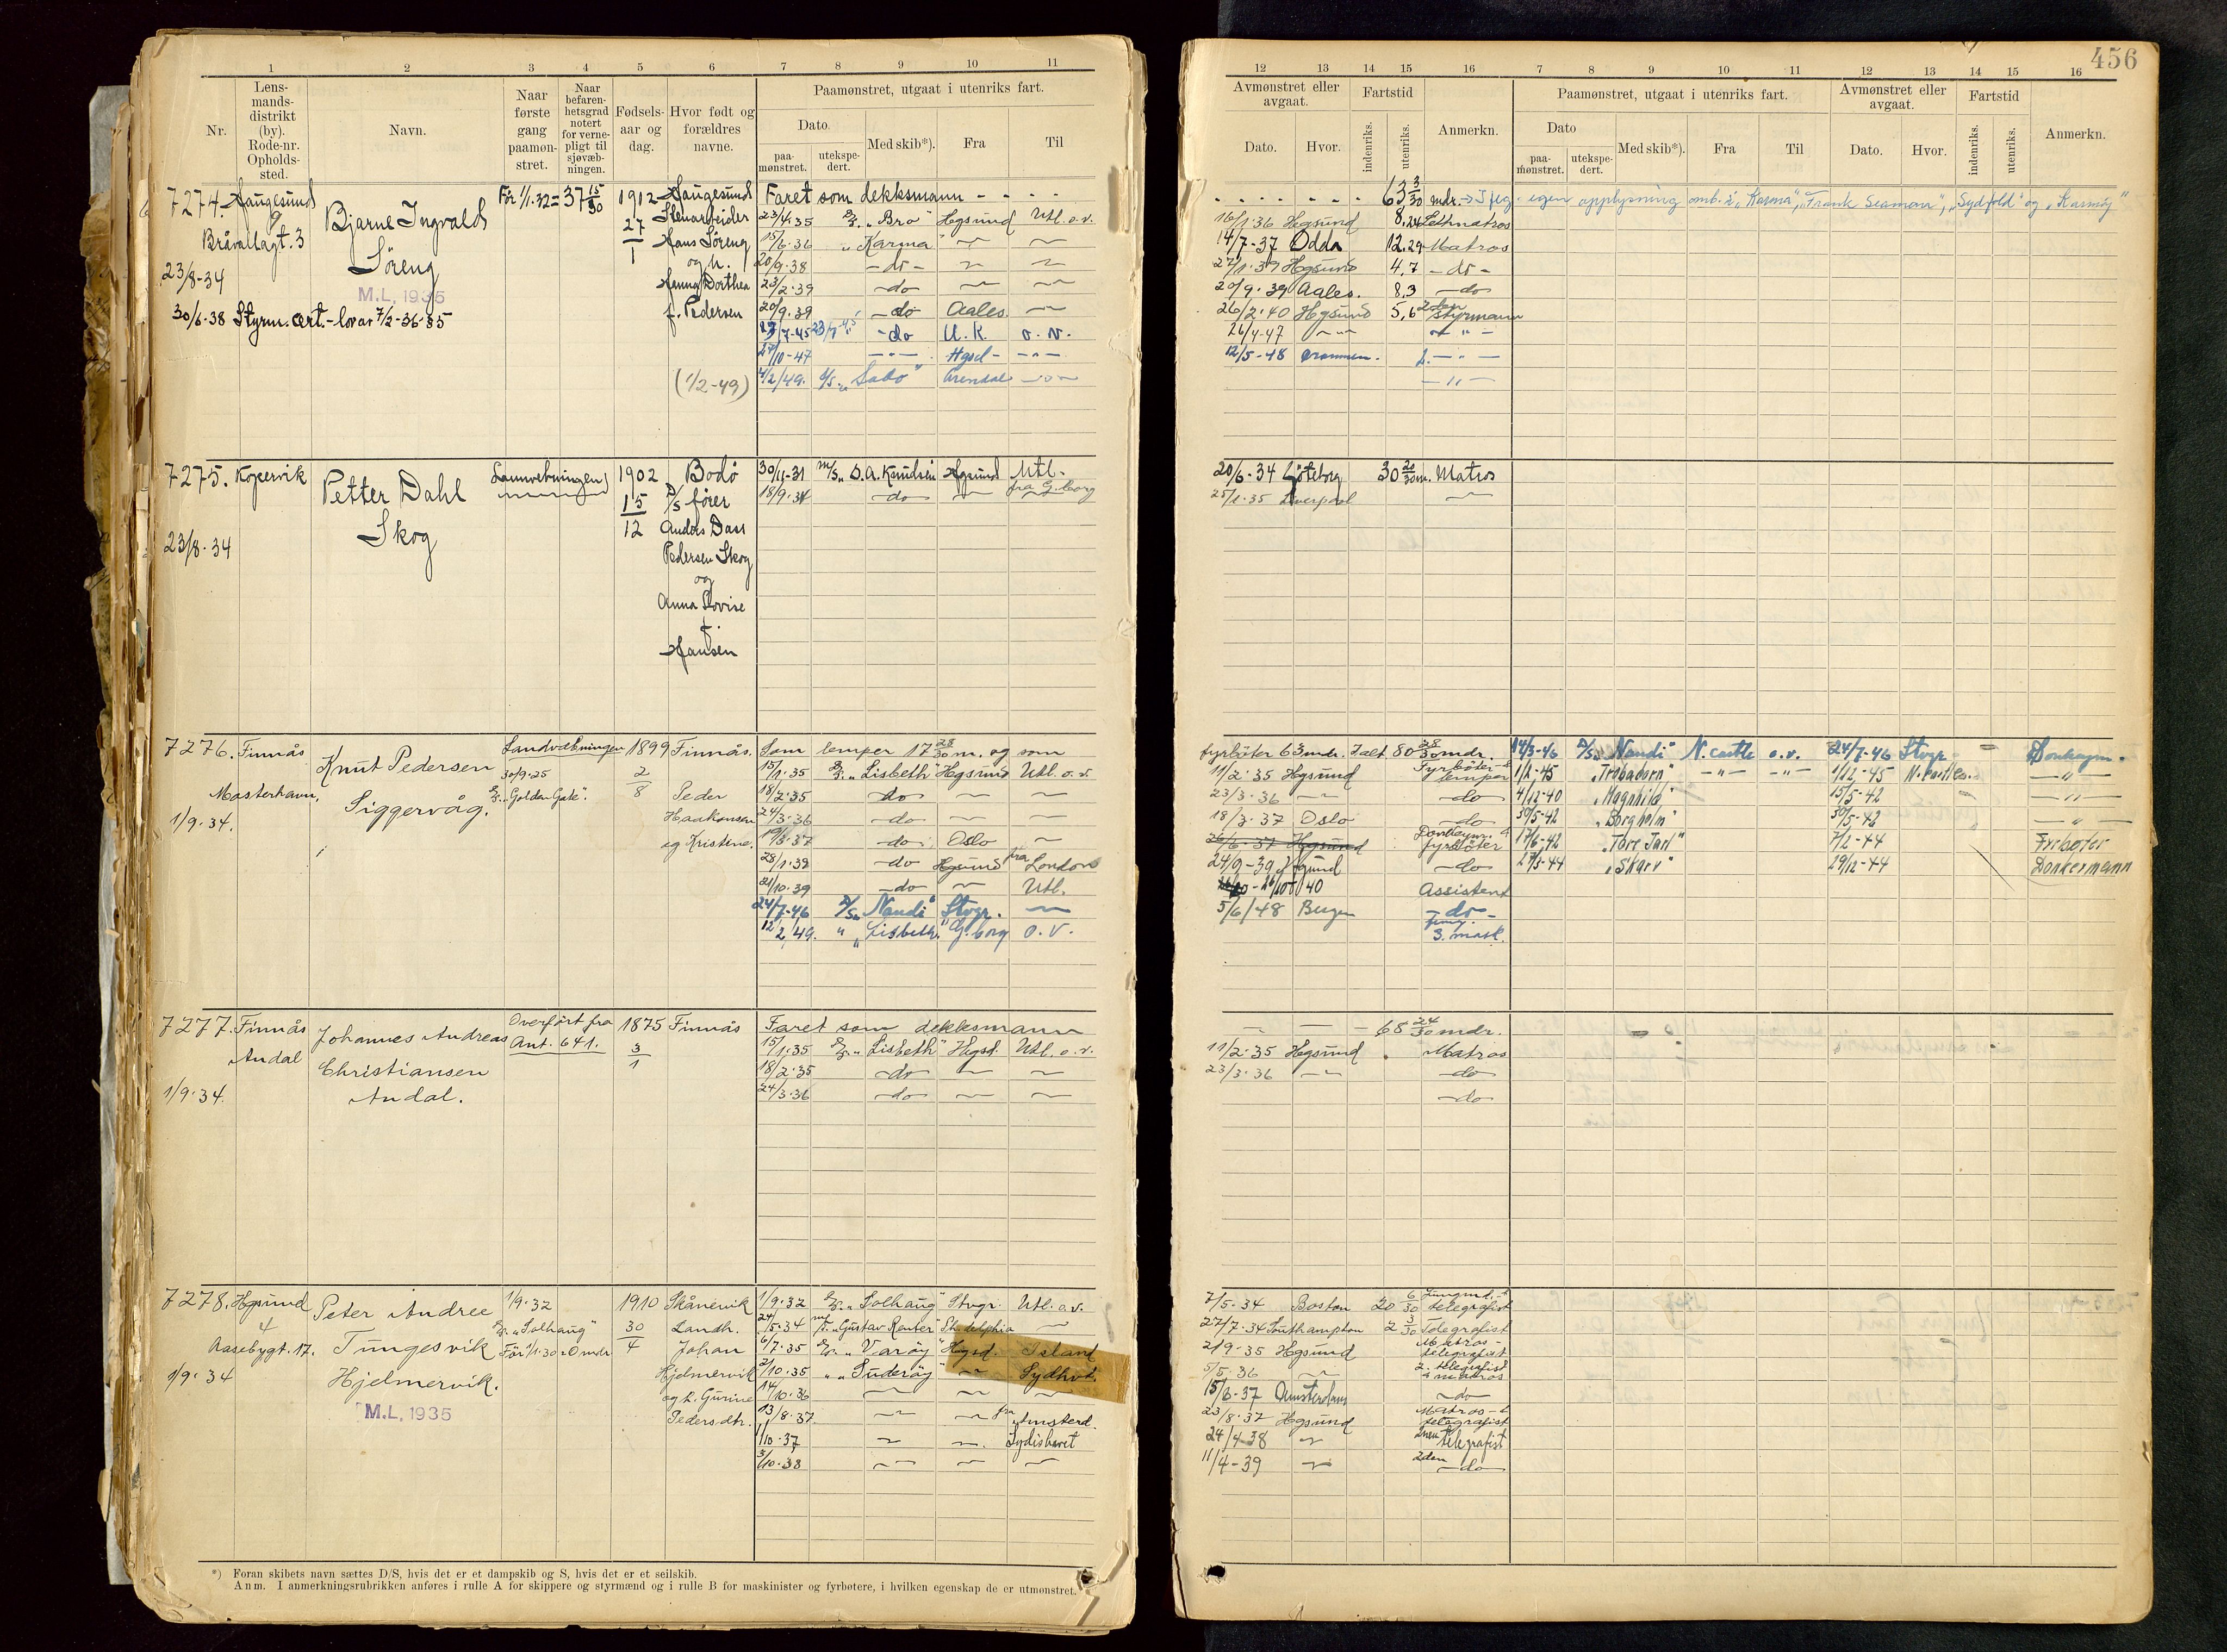 456
1 2 3 4 5 6 7 8 9 10 11
Nr.
Lens-
mands-
distrikt
(by).
Rode-nr.
Opholds-
sted.
Navn.
Naar
første
gang
paamøn-
stret.
Naar
befaren-
hetsgrad
notert
for verne-
pligt til
sjøvæb-
ningen.
Fødsels-
aar og
dag.
Hvor født og
forældres
navne.
Paamønstret, utgaat i utenriks fart.
Dato.
paa-
mønstret.
utekspe-
dert.
Med skib*).
Fra
Til
12 13 14 15 16 7 8 9 10 11 12 13 14 15 16
Avmønstret eller
avgaat.
Dato.
Hvor.
Fartstid
indenriks.
utenriks.
Anmerkn.
Paamønstret, utgaat i utenriks fart.
Dato
paa-
mønstret.
utekspe-
dert.
Med skib*).
Fra
Til
Avmønstret eller
avgaat.
Dato.
Hvor.
Fartstid
indenriks.
utenriks.
Anmerkn.
7274. Haugesund
9
Bråvallagt. 3
23/8-34
30/6-38 Styrm. cert.
Bjarne Ingvald
Søreng
M.L, 1935
Før 1/1.32 = 37 15/30
1912
27
1
Haugesund
Stenarbeider
Hans Søreng
og h.
Jenny Dorthea
f. Pedersen
(1/2-49)
Faret som dekksmann - - - -
23/4.35 "Bro" Hgsund Utl. o.v.
15/6.36 "Karma" — —
20/9.38 —do— — —
23/2.39 —do — —
20/9.39 —do Aales. —
—do U.K. o.v.
27/10-47 —"— Hgsd- —"—
4/2/49. D/S "Sabo" Arendal —"—
63 3/30 mdr. egen opplysning omb. i "Karma", "Frank Seamon", "Sydfold" og "Karmøy"
16/1.36 Hgsund 8,24 Lettmatros
14/7-37 Odda 12.29 Matros
27/1.39 Hgsund 4,7 —do—
20/9.39 Aales. 8,3 —do
26/2.40 Hgsund 5,6 2den styrmann
26/4-47 —"— —"—
12/5-48 —"—
—"—
7275. Kopervik
23/8.34
Petter Dahl
Skog
1902
15
12
Bodø
D/S fører
Anders Dass
Pedersen Skog
og
Anna Lovise
f.
Hansen
30/11-31 M/S "O.A. Knudsen" Hgsund Utl.
18/9.34 —do— — fra G.borg
20/6-34 Göteborg 30 20/30 m. Matros
25/1.35 Liverpool —
7276. Finnås
Mosterhavn,
1/9.34.
Knut Pedersen
Siggervåg.
Landvæbningen
30/9-25
"Golden Gate".
1899
2
8
Finnås.
Peder
Haakonsen
og Kristine.
Som lemper 17 28/30 m. og som
15/1.35 "Lisbeth" Hgsund Utl. o.v.
18/2.35 —do— — —
24/3.36 —do— — —
19/3.37 —do— Oslo —
28/1.39 —do Hgsund fra London
21/10.39 —do— — Utl.
24/7-46 D/S "Nandi" Stvgr. —
12/2/49. " "Lisbeth" G.borg o.v.
fyrbøter 63 mdr. Ialt 80 28/30 mdr.
11/2.35 Hgsund Fyrbøter- lemper
23/3.36 —"— —do
18/3.37 Oslo —do
26/6-37 Hgsund fyrbøter
24/9-39 Hgsund —do
Assistent
5/6/48 Bergen —do—
3. mask.
14/3-46 D/S "Nandi" N.castle o.v. 24/7-46 Stvgr. Donkeym.
1/2-45 "Trobadorn" —"— —"— 1/12-45 N.castle. —"—
4/12-40 "Magnhild" 15/5-42 —"—
30/5-42 "Borgholm" 30/5-42 —"—
17/6-42 "Tore Jarl" 7/2-44 Frbøter
27/3-44 "Skarv" 29/12-44 Donkermann
7277. Finnås
Andal
1/9.34.
Johannes Andreas
Christiansen
Andal.
Overført fra
Ant. 641.
1875
3
1
Finnås
Faret som dekksmann
15/1.35 "Lisbeth" Hgsd. Utl. o.v.
18/2.35 —do— — —
24/3.36 —do— — —
— — — 68 24/30 mdr.
11/2.35 Hgsund Matros
23/3.36 —"— —do—
—do—
7278. Hgsund
4
Aasebygt. 17.
1/9.34
Peter Andree
Tungesvik
Hjelmervik.
M.L, 1935
1/9.32
"Solhaug"
Før 1/1.30 = 0 mdr
1910
30
4
Skånevik
Landh.
Johan
Hjelmervik
og h. Gurine
Pedersdtr.
1/9.32 "Solhaug" Stvgr. Utl. o.v.
24/5.34 "Gustav Reuter" —
6/7.35 "Varøy" Hgsd. Island
2/10.35 " "Suderøy" — Sydhvt.
14/10.36 — — —
13/8.37. — — fra Amsterd.
1/10.37 — — Sydishavet
5/10.38 — — —
7/5.34 Boston 20 6/30 telegrafist
27/7.34 Southampton 2 3/30 Telegrafist
2/9.35 Hgsund Matros- telegrafist
5/5.36 — 2. telegrafist matros
15/6-37 Amsterdam —do
23/8.37 Hgsund Matros- telegrafist
24/4-38 — 2nen telegrafist
11/4-39 — 2den —do
*) Foran skibets navn sættes D/S, hvis det er et dampskib og S, hvis det er et seilskib.
Anm. I anmerkningsrubrikken anføres i rulle A for skippere og styrmænd og i rulle B for maskinister og fyrbøtere, i hvilken egenskap de er utmønstret.